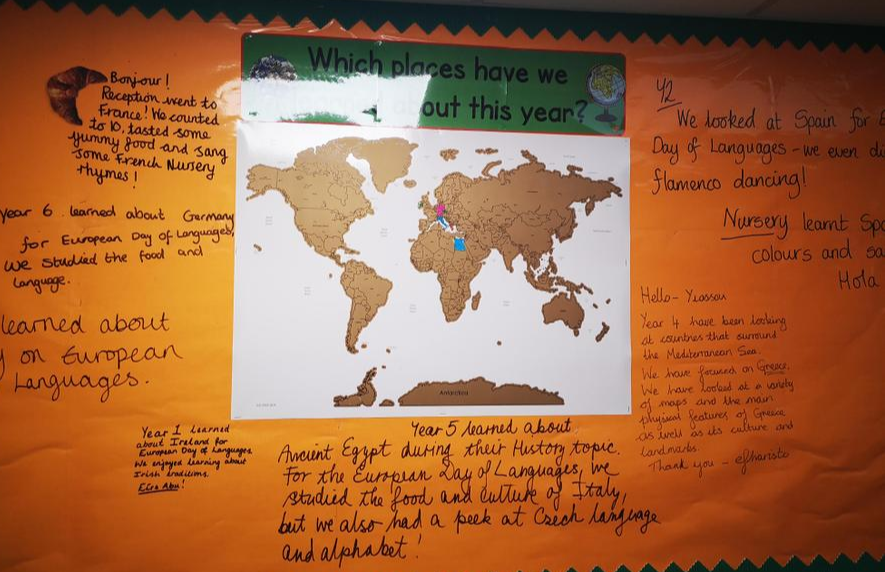 Which places have we
out this year?
Bonjour!
Reception went to
France! We counted
to 10, tasted some
yummy food and sang
some French Nursery
rhymes!
Year 6 learned about Germany
for European Day of Languages,
We studied the food and
language.
learned about
on European
Languages.
Year 1 learned
about Ireland for
European Day of Languages.
We enjoyed learning about
Irish traditions.
Antarctica
Year 5 learned about
Ancient Egypt during their History topic.
For the European Day of Languages, we
studied the food and culture of Italy,
but we also had a peek at Czech language
and alphabet!
Y2
We looked at Spain for
Day of Languages - we even
flamenco dancing!
Nursery learnt
colours and
Hola
Hello - Yiassou
Year 4 have been looking
at countries that surround
the Mediterranean Sea.
We have focused on Greece.
We have looked at a variety
of maps and the main
physical features of Greece
as well as its culture and
landmarks.
Thank you - efharisto